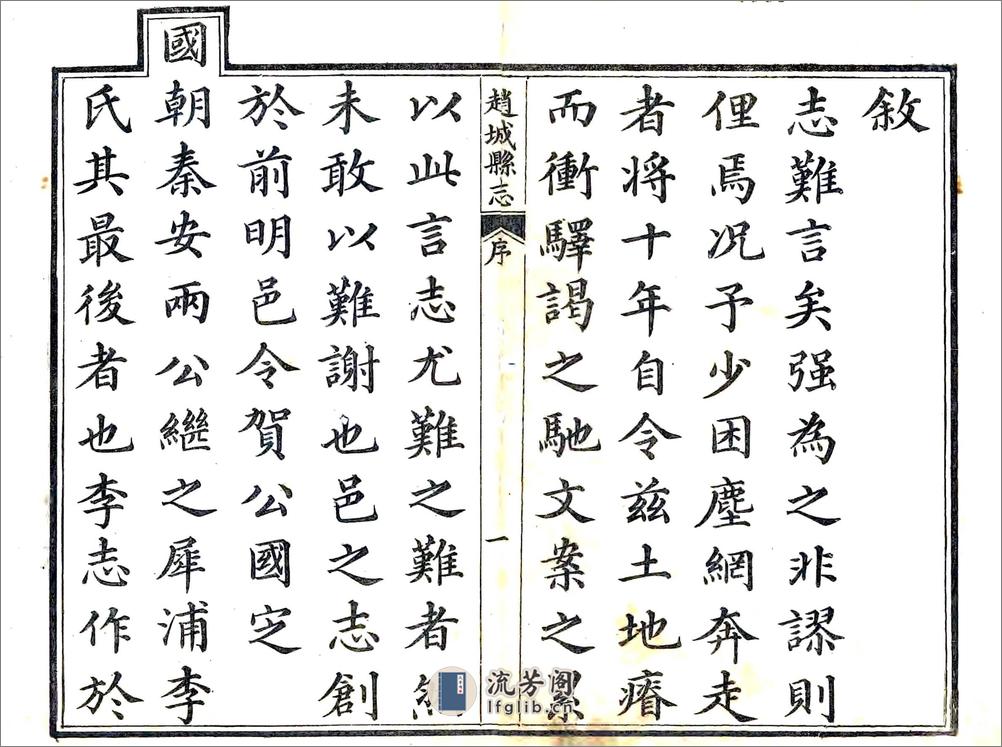 敘
志難言矣强為之非謬則
俚焉况予少困塵網奔走
者将十年自令兹土地瘠
而衝驛謁之馳文案之
趙城縣志 序 一
以此言志尤難之難者
未敢以難謝也邑之志創
於前明邑令賀公國㝎
國朝秦安兩公繼之犀浦李
氏其最後者也李志作於
流芳阁
lfglib.cn